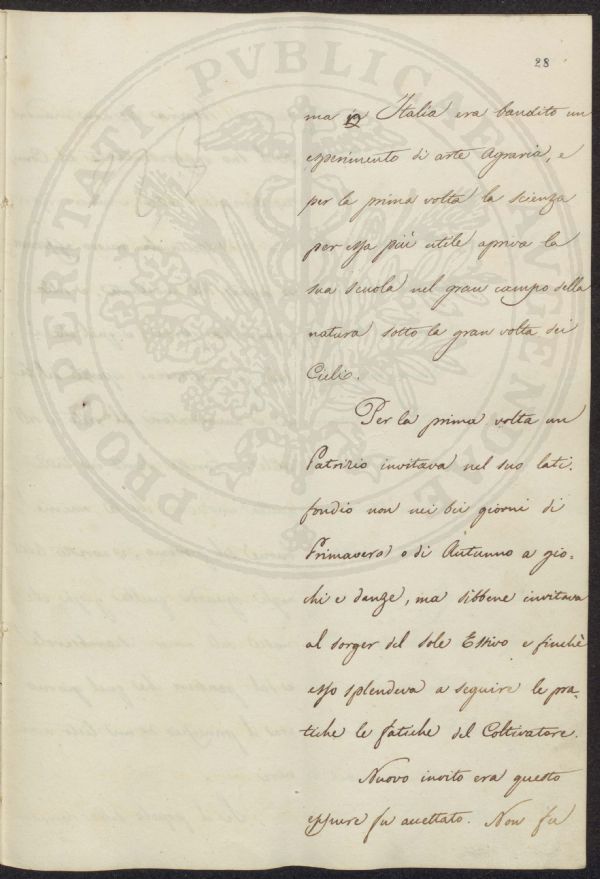 28
ma in Italia era bandito un
esperimento di arte Agraria, e
per la prima volta la scienza
per essa più utile apriva la
sua scuola nel gran campo della
natura sotto la gran volta dei
Cieli.
Per la prima volta un
Patrizio invitava nel suo lati-
fondio non nei bei giorni di
Primavera o di Autunno a gio-
chi e danze, ma sibbene invitava
al sorger del sole Estivo e finchè
esso splendeva a seguire le pra-
tiche le fatiche del Coltivatore.
Nuovo invito era questo
eppure fu accettato. Non fu
PROSPERITATI PVBLICAE AVGENDAE